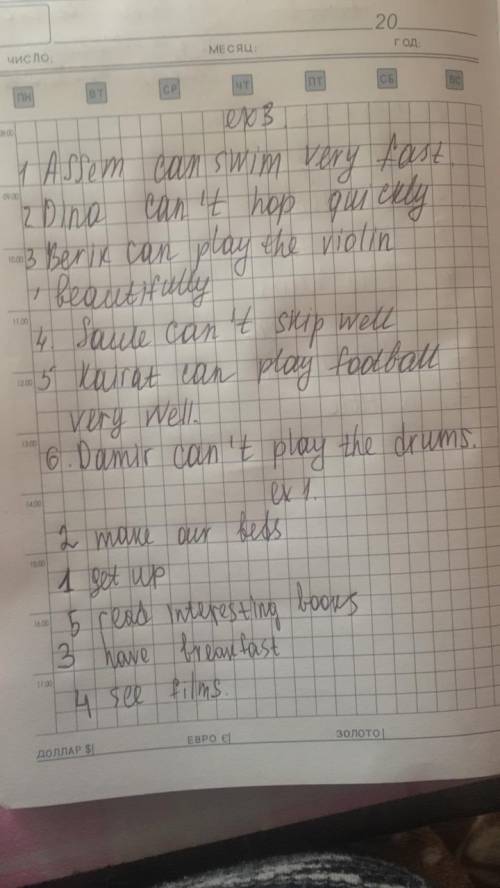 20
ЧИСЛО: МЕСЯЦ: ГОД:
ПН ВТ СР ЧТ ПТ СБ ВС
ex 3
09:00
1 Assem can swim very fast.
2 Dina can't hop quickly
10:00 3 Berik can play the violin
beautifully
11:00
4. Saule can't skip well
12:00 5 Kairat can play football
very well.
13:00
6. Damir can't play the drums.
ex 1.
14:00
2 make our beds
15:00
1 get up
16:00 5 read interesting books
3 have breakfast
17:00
4 see films.
ДОЛЛАР $| ЕВРО €| ЗОЛОТО|